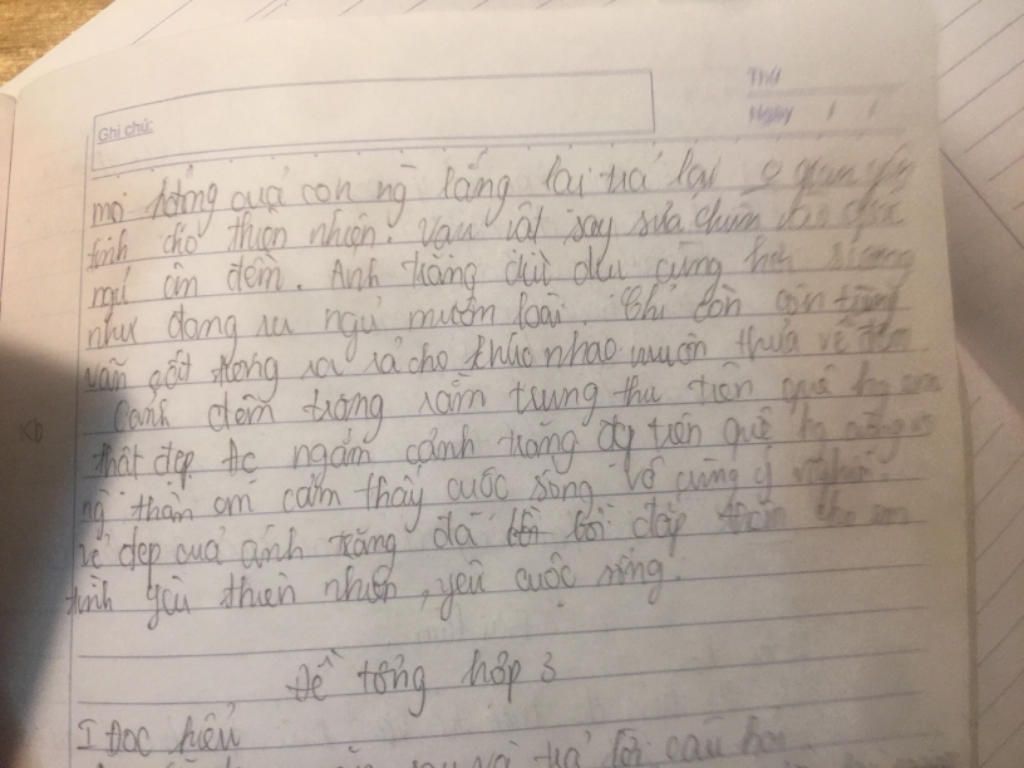 Thứ
Ghi chú:
Ngày
mọi tiếng của con ng lắng lại trả lại
tình cho thiên nhiên. Vạn vật say sưa chìm vào
ngủ êm đềm. Anh trăng dịu dịu cùng hơi sương
như đang ru ngủ muôn loài. Chỉ còn côn trùng
vẫn cất tiếng ra rả cho khúc nhạc muôn thuở về đêm
Cảnh đêm trăng rằm trung thu trên quê
thật đẹp. Đc ngắm cảnh trăng đẹp trên quê cùng
ng thân em cảm thấy cuộc sống vô cùng ý nghĩa.
vẻ đẹp của ánh trăng đã bồi đắp thêm cho em
tình yêu thiên nhiên, yêu cuộc sống.
Đề tổng hợp 3
I Đọc hiểu
và trả lời câu hỏi